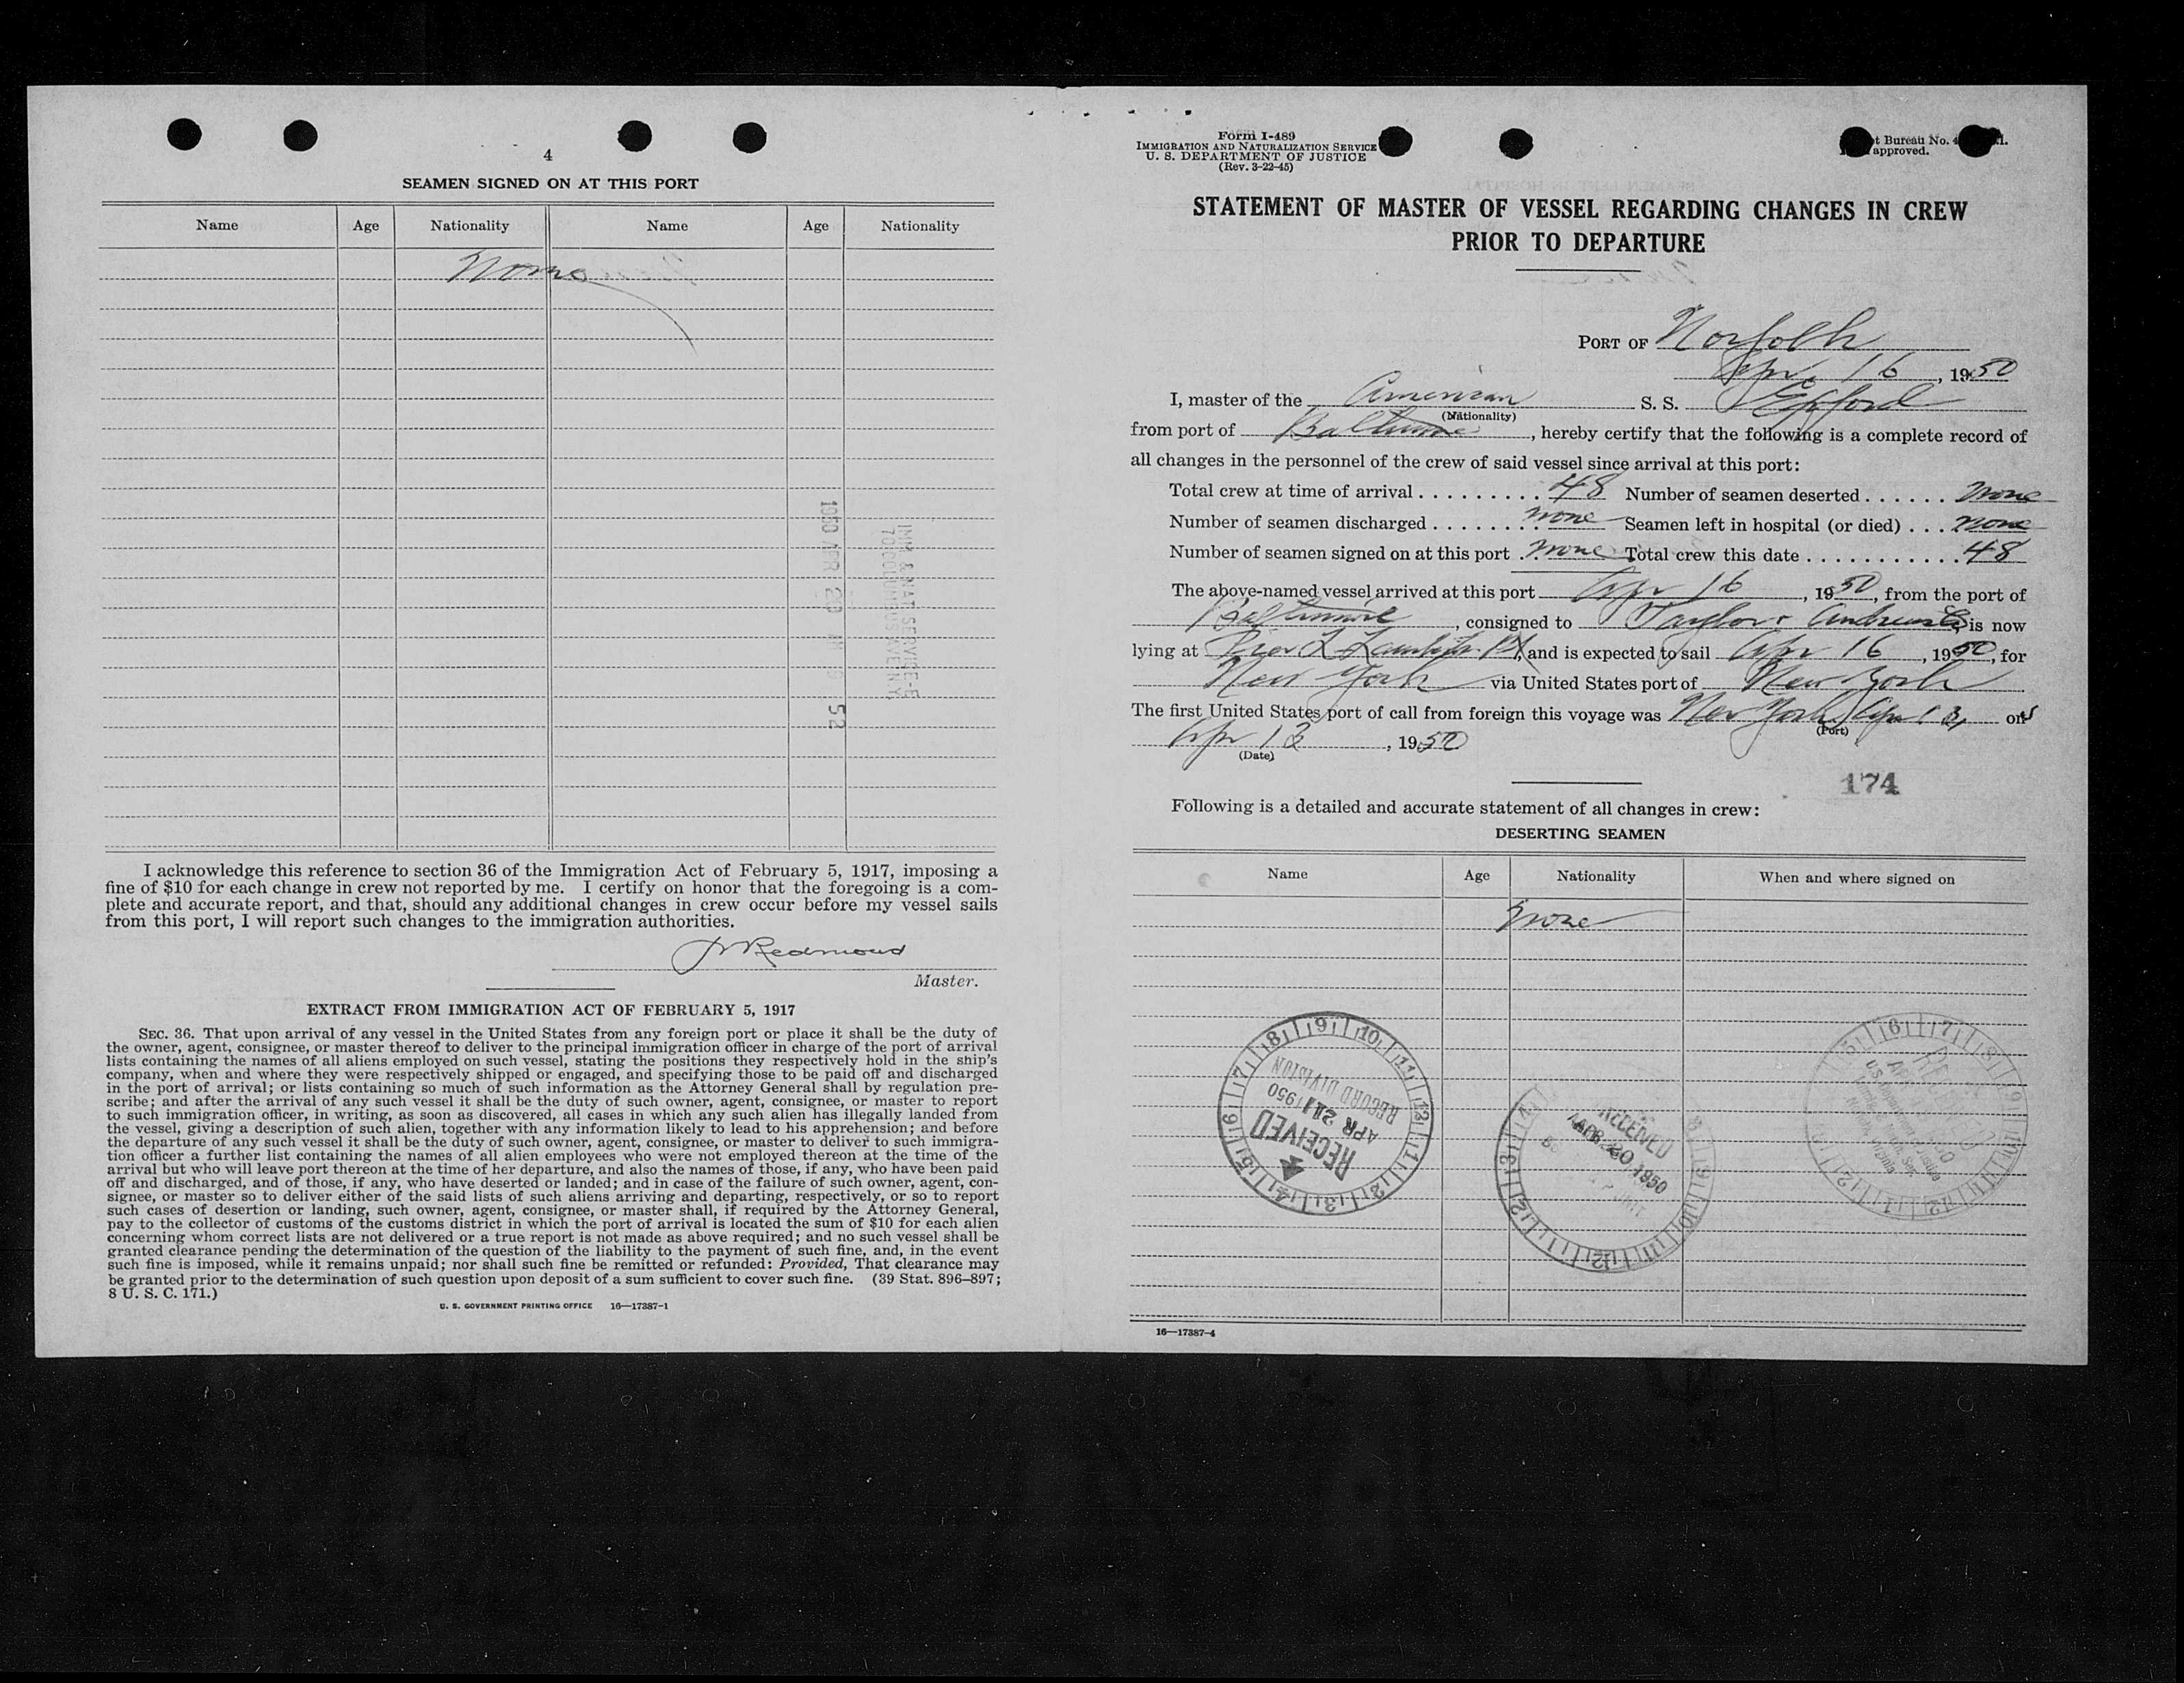 4
SEAMEN SIGNED ON AT THIS PORT
Name Age Nationality Name Age Nationality
None
1950 APR 20 AM 9 52
IMM. & NAT. SERVICE-E
70 COLUMBUS AVE N Y
I acknowledge this reference to section 36 of the Immigration Act of February 5, 1917, imposing a
fine of $10 for each change in crew not reported by me. I certify on honor that the foregoing is a com-
plete and accurate report, and that, should any additional changes in crew occur before my vessel sails
from this port, I will report such changes to the immigration authorities.
Redmond
Master.
EXTRACT FROM IMMIGRATION ACT OF FEBRUARY 5, 1917
SEC. 36. That upon arrival of any vessel in the United States from any foreign port or place it shall be the duty of
the owner, agent, consignee, or master thereof to deliver to the principal immigration officer in charge of the port of arrival
lists containing the names of all aliens employed on such vessel, stating the positions they respectively hold in the ship's
company, when and where they were respectively shipped or engaged, and specifying those to be paid off and discharged
in the port of arrival; or lists containing so much of such information as the Attorney General shall by regulation pre-
scribe; and after the arrival of any such vessel it shall be the duty of such owner, agent, consignee, or master to report
to such immigration officer, in writing, as soon as discovered, all cases in which any such alien has illegally landed from
the vessel, giving a description of such alien, together with any information likely to lead to his apprehension; and before
the departure of any such vessel it shall be the duty of such owner, agent, consignee, or master to deliver to such immigra-
tion officer a further list containing the names of all alien employees who were not employed thereon at the time of the
arrival but who will leave port thereon at the time of her departure, and also the names of those, if any, who have been paid
off and discharged, and of those, if any, who have deserted or landed; and in case of the failure of such owner, agent, con-
signee, or master so to deliver either of the said lists of such aliens arriving and departing, respectively, or so to report
such cases of desertion or landing, such owner, agent, consignee, or master shall, if required by the Attorney General,
pay to the collector of customs of the customs district in which the port of arrival is located the sum of $10 for each alien
concerning whom correct lists are not delivered or a true report is not made as above required; and no such vessel shall be
granted clearance pending the determination of the question of the liability to the payment of such fine, and, in the event
such fine is imposed, while it remains unpaid; nor shall such fine be remitted or refunded: Provided, That clearance may
be granted prior to the determination of such question upon deposit of a sum sufficient to cover such fine. (39 Stat. 896-897;
8 U. S. C. 171.)
U. S. GOVERNMENT PRINTING OFFICE 16—17387-1
Form I-489
IMMIGRATION AND NATURALIZATION SERVICE
U. S. DEPARTMENT OF JUSTICE
(Rev. 3-22-45)
t Bureau No. 4
approved.
STATEMENT OF MASTER OF VESSEL REGARDING CHANGES IN CREW
PRIOR TO DEPARTURE
PORT OF Norfolk
Apr. 16, 1950
I, master of the American S. S. Epford
(Nationality)
from port of Baltimore, hereby certify that the following is a complete record of
all changes in the personnel of the crew of said vessel since arrival at this port:
Total crew at time of arrival 48 Number of seamen deserted none
Number of seamen discharged none Seamen left in hospital (or died) none
Number of seamen signed on at this port none Total crew this date 48
The above-named vessel arrived at this port Apr 16, 1950, from the port of
Baltimore, consigned to Taylor & Andrews Co is now
lying at Pier L Lamberts Pt, and is expected to sail Apr 16, 1950, for
New York via United States port of New York
The first United States port of call from foreign this voyage was New York Apr 13, on
(Port)
Apr 13, 1950
(Date)
174
Following is a detailed and accurate statement of all changes in crew:
DESERTING SEAMEN
Name Age Nationality When and where signed on
None
RECEIVED
APR 21 1950
RECORD DIVISION
RECEIVED
APR 20 1950
16—17387-4